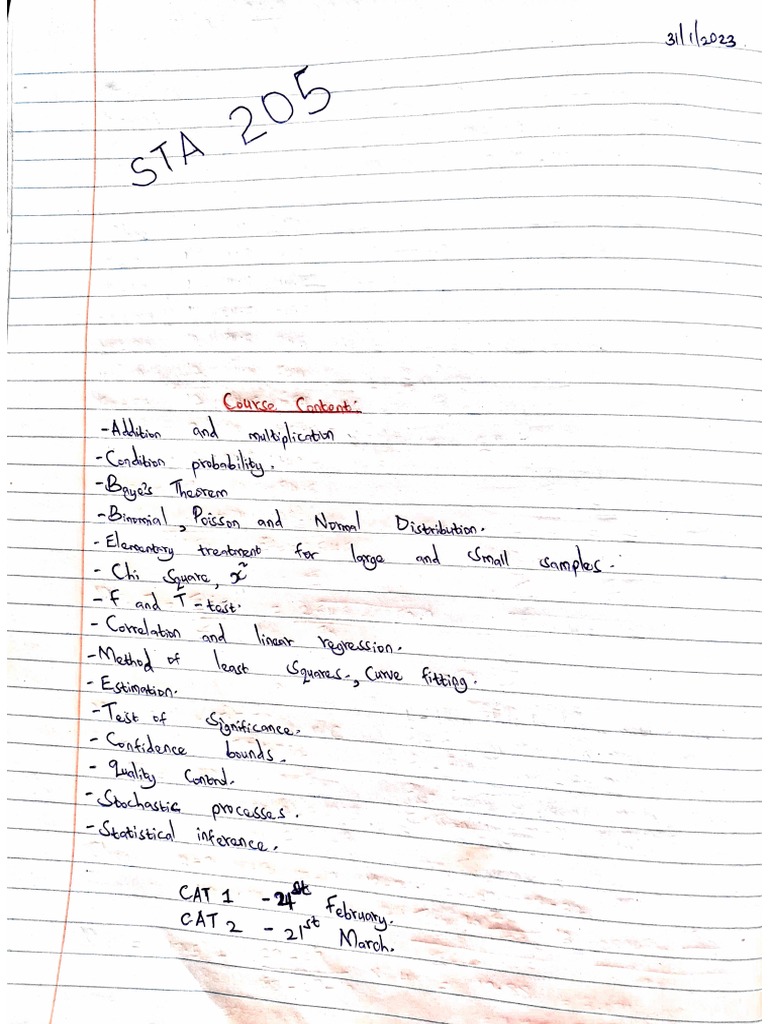 31/1/2023
STA 205
Course Content:
-Addition and multiplication.
-Condition probability.
-Baye's Theorem
-Binomial, Poisson and Normal Distribution.
-Elementary treatment for large and small samples.
-Chi Square, x²
-F and T-test.
-Correlation and linear regression.
-Method of least squares, Curve fitting.
-Estimation.
-Test of Significance.
-Confidence bounds.
-Quality Control.
-Stochastic processes.
-Statistical inference.
CAT 1 -24st February.
CAT 2 -21st March.